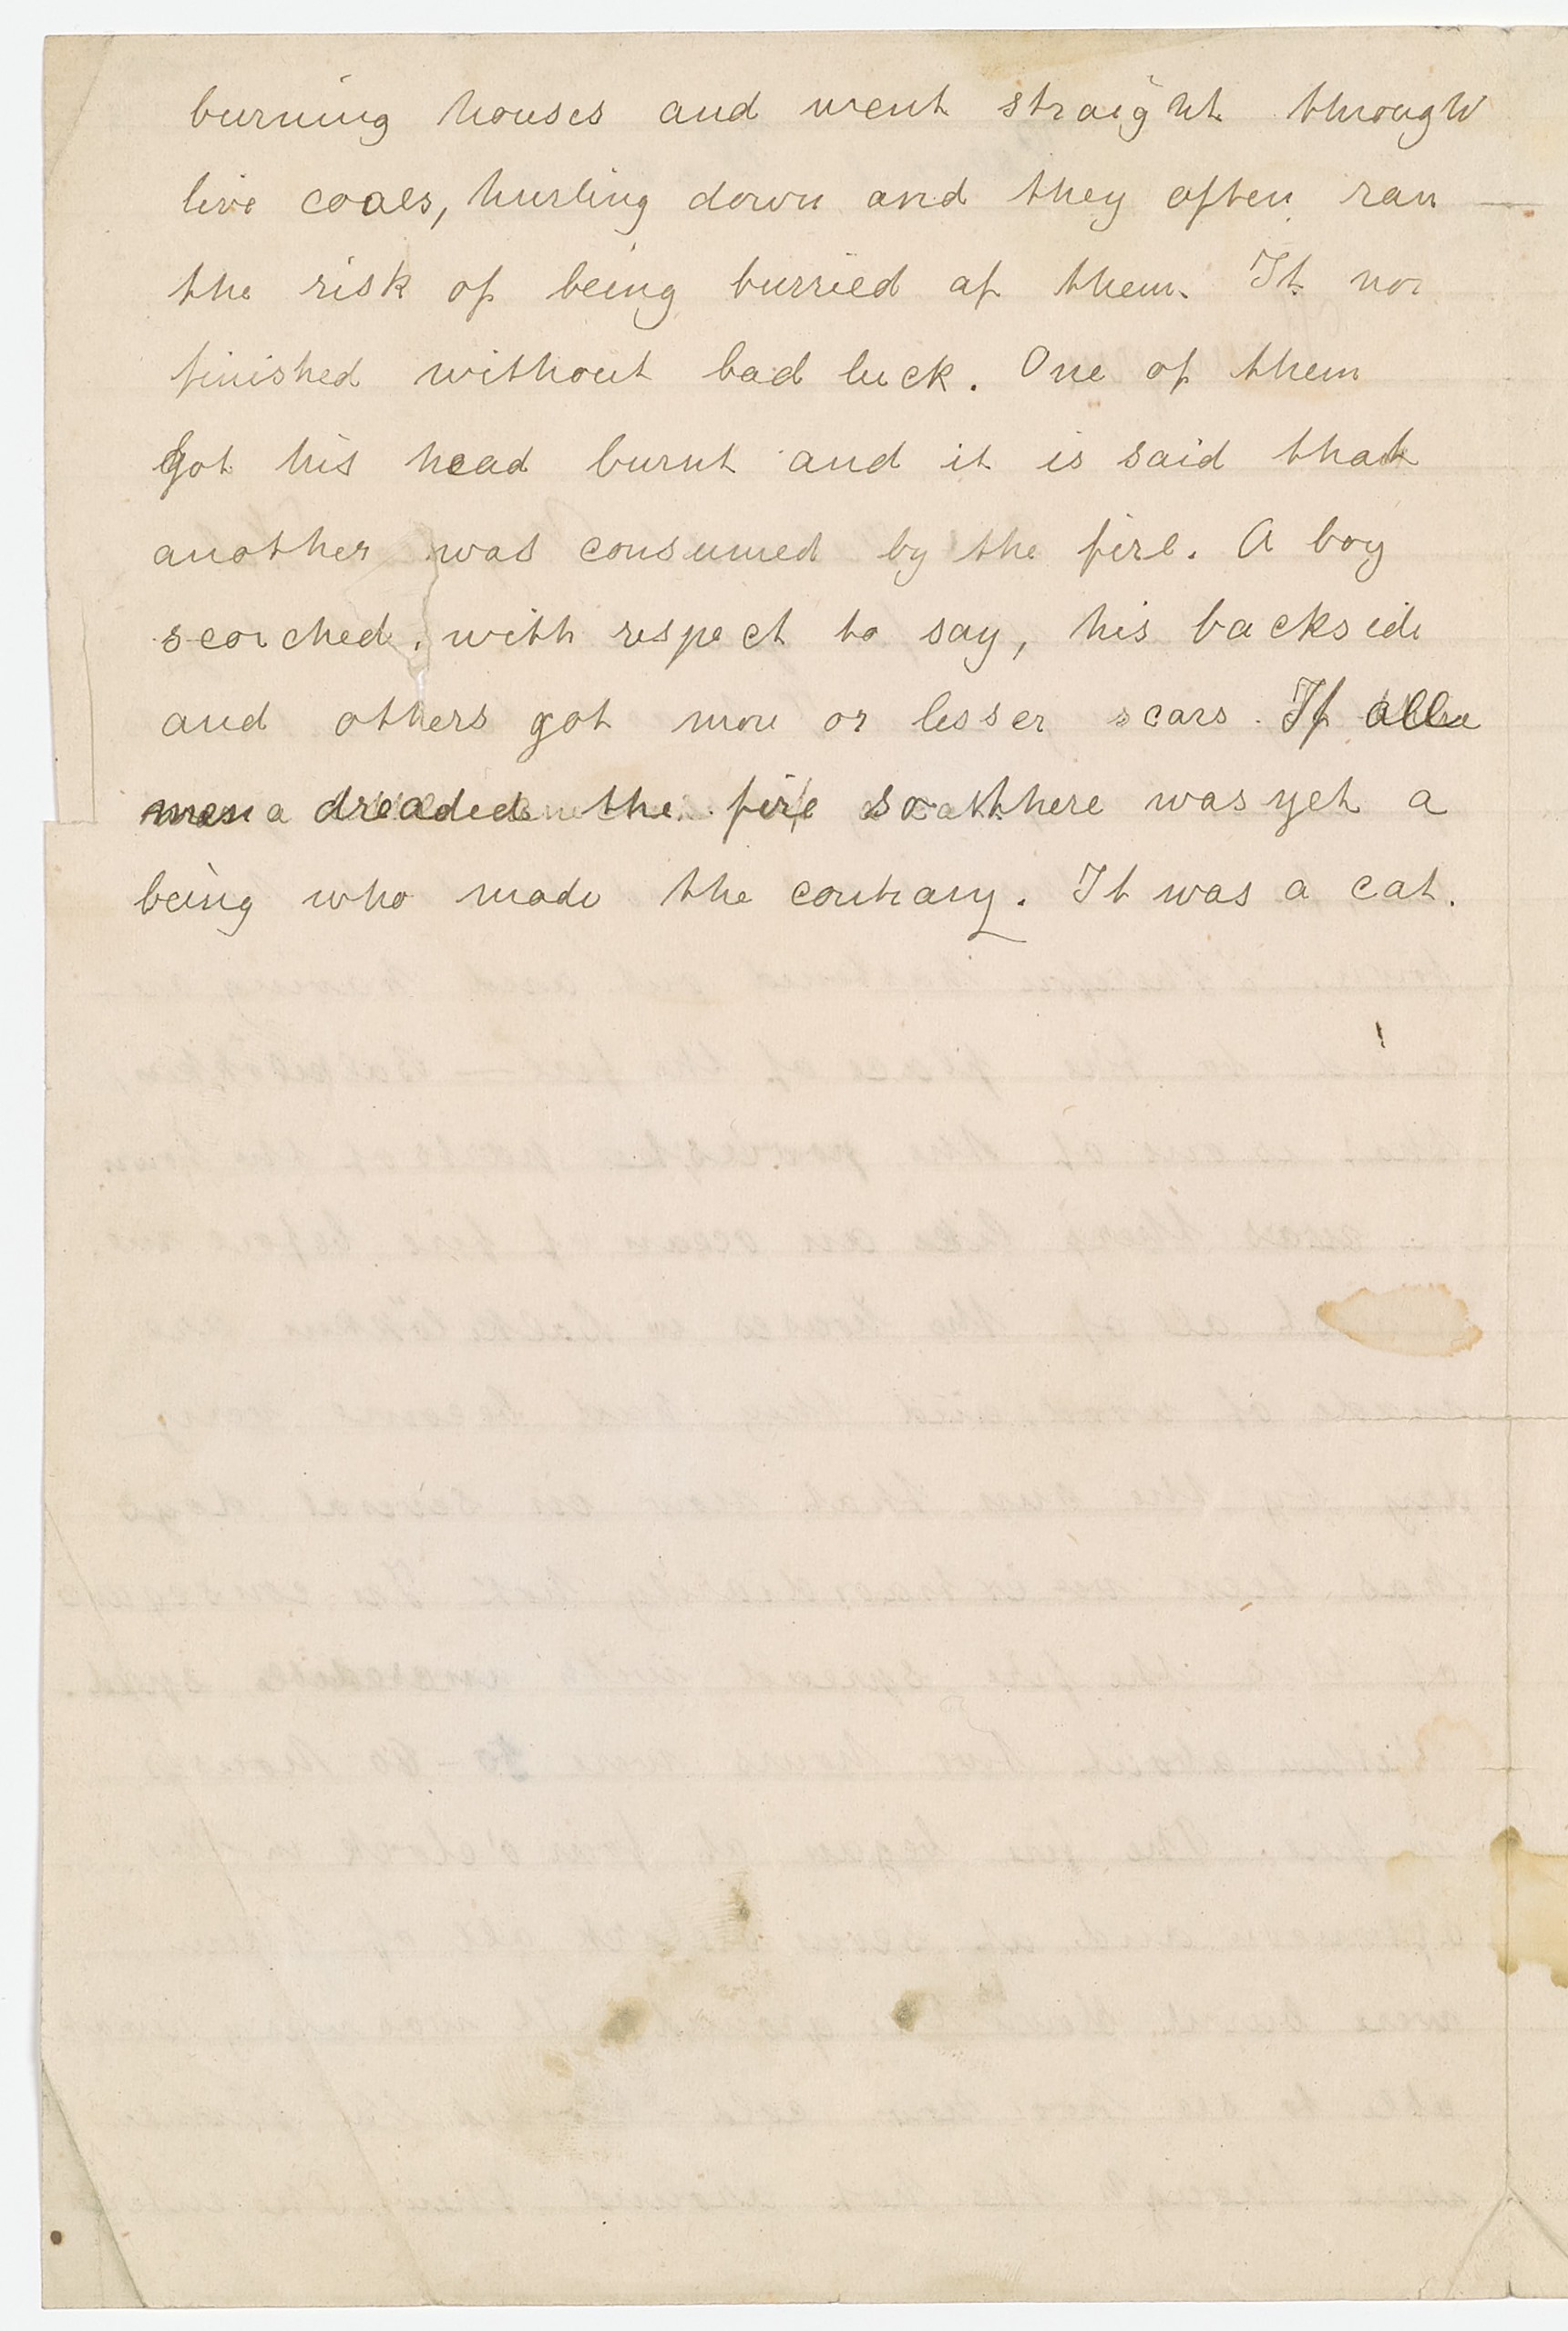 burning houses and went straight through
live coals, hurling down and they often ran
the risk of being burried af them. It nor
finished without bad luck. One of them
got his head burnt and it is said that
another was consumed by the fire. A boy
scorched, with respect to say, his backside
and others got more or lesser scars. If all
men dreaded the fire so there was yet a
being who made the contrary. It was a cat.